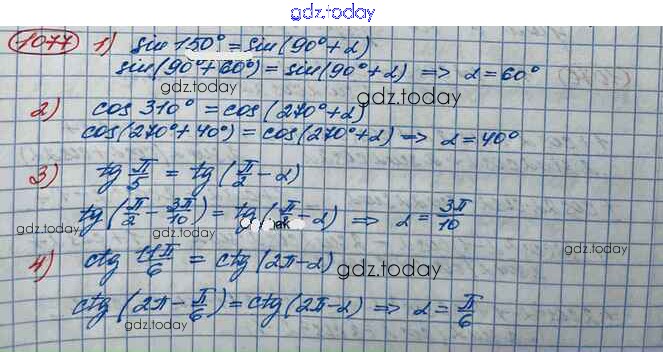 gdz.today
gdz.today
1077 1) sin 150° = sin(90°+α)
sin(90°+60°) = sin(90°+α) => α = 60°
gdz.today
2) cos 310° = cos(270°+α)
cos(270°+40°) = cos(270°+α) => α = 40°
3) tg π/5 = tg(π/2 - α)
tg(π/2 - 3π/10) = tg(π/2 - α) => α = 3π/10
gdz.today
gdz.today
4) ctg 11π/6 = ctg(2π-α)
gdz.today
ctg(2π - π/6) = ctg(2π-α) => α = π/6
gdz.today